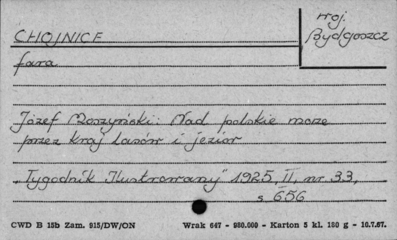 woj.
Bydgoszcz
CHOJNICE
fara
Józef Moszyński: Nad polskie morze
przez kraj lasów i jezior
"Tygodnik Ilustrowany" 1925, II, nr. 33,
s 656
CWD B 15b Zam. 915/DW/ON Wrak 647 - 980.000 - Karton 5 kl. 180 g - 10.7.67.